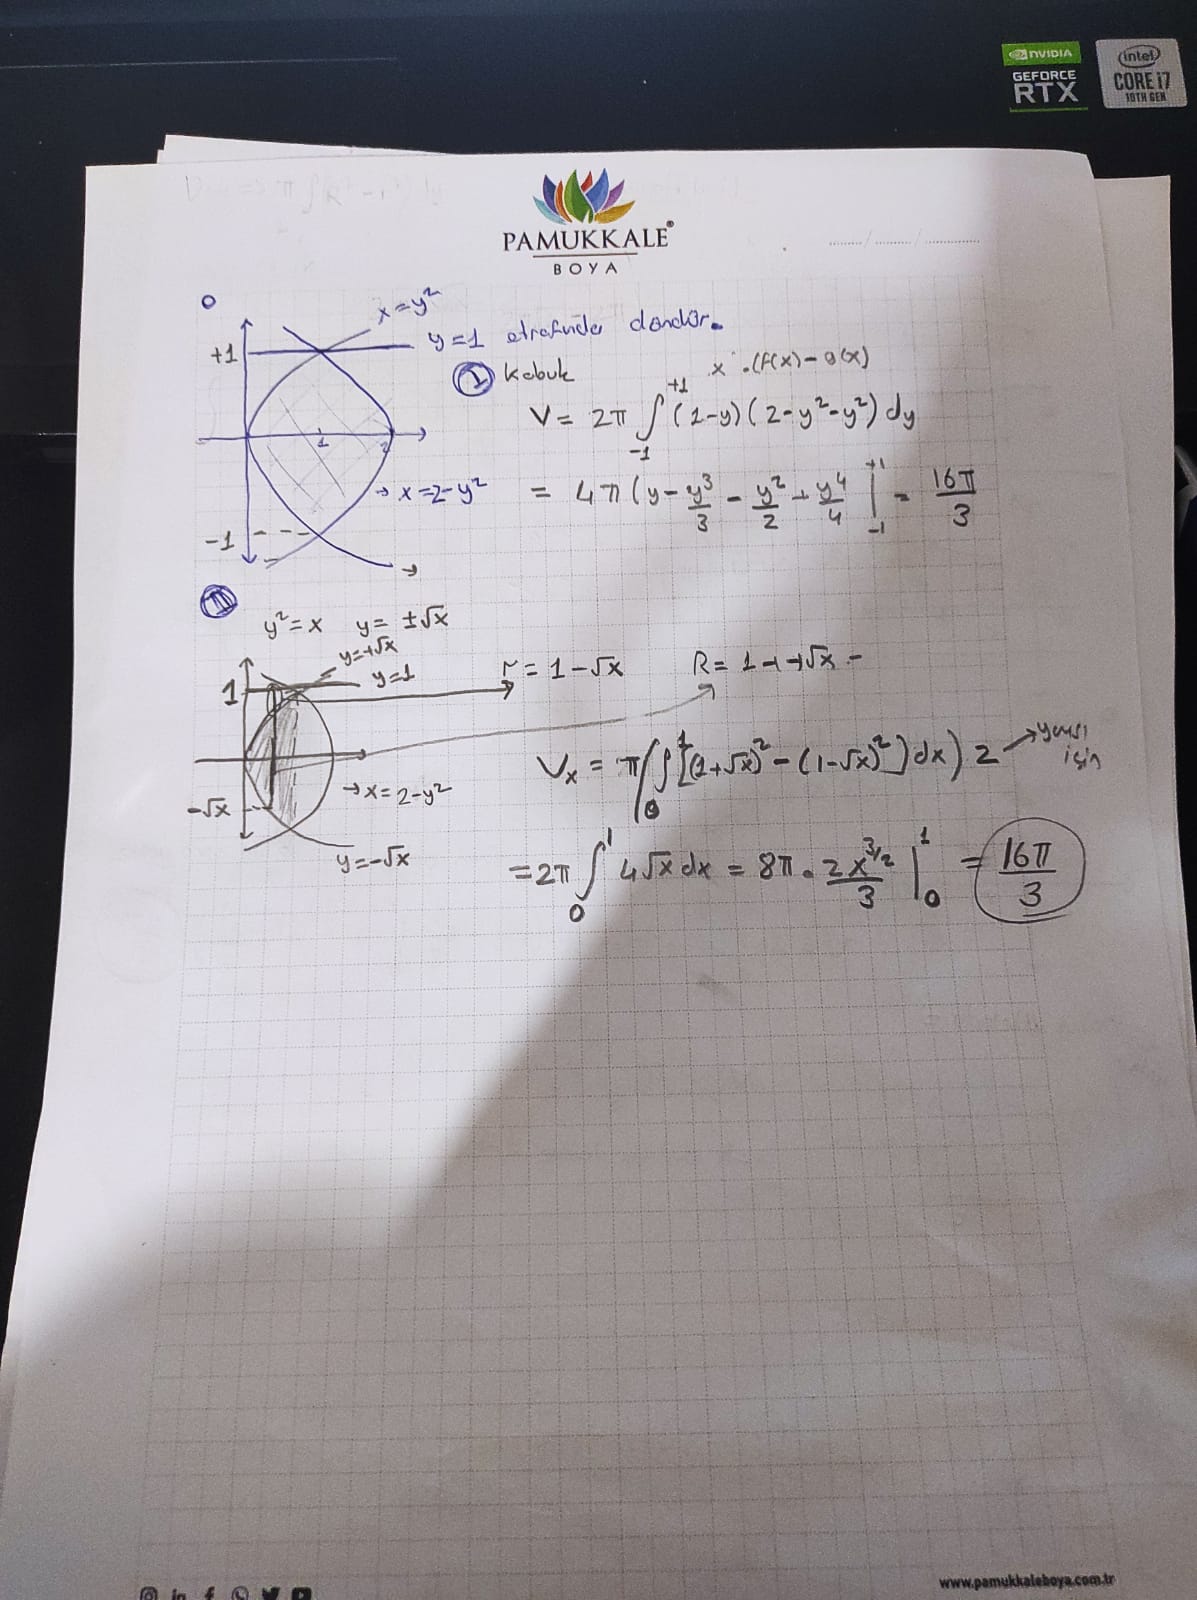 NVIDIA
GEFORCE
RTX
intel
CORE i7
10TH GEN
PAMUKKALE®
BOYA
....../....../......
x=y²
+1
y=1 etrafında döndür.
① Kabuk
x .(f(x)-g(x)
V= 2π ∫₋₁⁺¹ (1-y)(2-y²-y²) dy
1
2
→ x=2-y²
= 4π (y - y³/3 - y²/2 + y⁴/4 |₋₁⁺¹ = 16π/3
-1
II
y²=x y= ±√x
y=+√x
y=1
r= 1-√x R= 1++√x -
1
Vx = π(∫₀¹ [(1+√x)² - (1-√x)²] dx) 2 → yarısı için
→ x=2-y²
-√x
y=-√x
=2π ∫₀¹ 4√x dx = 8π . 2x^3/2 / 3 |₀¹ = 16π/3
www.pamukkaleboya.com.tr